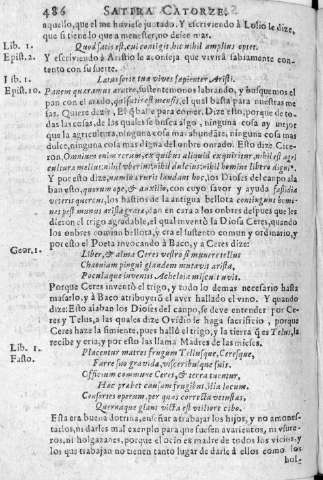 486 SATIRA CATORZE.
aquello, que el me huviese juntado. Y escriviendo à Lolio le dize,
que si tiene lo que a menester, no desee mas.
Lib. 1. Quod satis est, cui contigit, hic nihil amplius optet.
Epist. 2. Y escriviendo à Aristio le aconseja que vivirà sabiamente con-
tento con su suerte.
Lib. 1. Laetus sorte tua vives sapienter Aristi.
Epist. 10. Panem quaeramus aratro, sustentemonos labrando, y busquemos el
pan con el arado, quod satis est mensis, el qual basta para nuestras me
sas. Quiere dezir, El que basta para comer. Dize esto, porque de to-
das las cosas, de las quales se busca algo, ninguna cosa ay mejor
que la agricultura, ninguna cosa mas abundante, ninguna cosa mas
dulce, ninguna cosa mas digna del onbre onrado. Esto dize Cice-
ron. Omnium enim rerum, ex quibus aliquid exquiritur, nihil est agri
cultura melius, nihil uberius, nihil dulcius, nihil homine libero dignius.
Y por esto dize, numina ruris laudant hoc, los Dioses del campo ala
ban esto, quorum ope, & auxilio, con cuyo favor y ayuda fastidia
veteris quercus, los hastios de la antigua bellota contingunt homi-
nibus post munus aristae gratae, dan en cara à los onbres despues que les
dieron el trigo agradable, el qual inventò la Diosa Ceres, quando
los onbres comian bellota, y era el sustento comun y ordinario, y
por esto el Poeta invocando à Baco, y a Ceres dize:
Geor. 1. Liber, & alma Ceres vestro si munere tellus
Chaoniam pingui glandem mutavit arista,
Poculaque inventis Acheloia miscuit uvis.
Porque Ceres inventò el trigo, y todo lo demas necesario hasta
masarlo, y à Baco atribuyeron el aver hallado el vino. Y quando
dize: Esto alaban los Dioses del campo, se deve entender por Ce-
res y Telus, a las quales dize Ovidio se haga sacrificio, porque
Ceres haze la simiente, pues hallò el trigo, y la tierra que es Telus, la
recibe y cria, y por esto las llama Madres de las mieses.
Lib. 1. Placentur matres frugum Tellusque, Ceresque,
Fasto. Farre suo gravidae, visceribusque suis.
Officium commune Ceres, & terra tuentur,
Haec prabet causam frugibus, illa locum.
Consortes operum, per quas correcta vetustas,
Quernaque glans victa est utiliore cibo.
Esta era buena dotrina, enseñar a trabajar los hijos, y no amones-
tarlos, ni darles mal exemplo para que fuesen avarientos, ni visure-
ros, ni holgazanes, porque el ocio es madre de todos los vicios, y
los que trabajan no tienen tanto lugar de darse à ellos como los
hol-